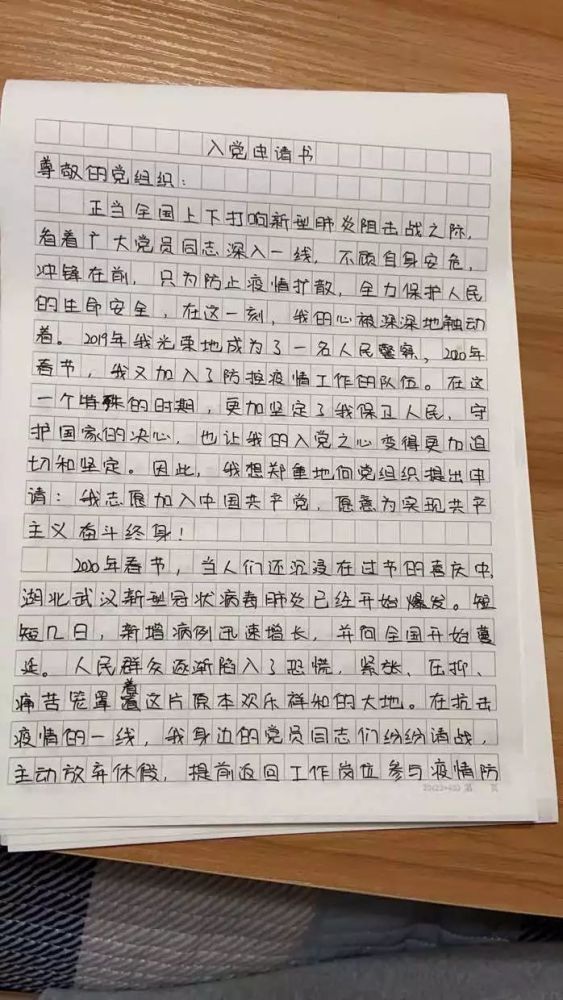 入党申请书
尊敬的党组织：
正当全国上下打响新型肺炎阻击战之际，
看着广大党员同志深入一线，不顾自身安危，
冲锋在前，只为防止疫情扩散，全力保护人民
的生命安全，在这一刻，我的心被深深地触动
着。2019年我光荣地成为了一名人民警察，2020年
春节，我又加入了防控疫情工作的队伍。在这
一个特殊的时期，更加坚定了我保卫人民、守
护国家的决心，也让我的入党之心变得更加迫
切和坚定。因此，我想郑重地向党组织提出申
请：我志愿加入中国共产党，愿意为实现共产
主义奋斗终身！
2020年春节，当人们还沉浸在过节的喜庆中，
湖北武汉新型冠状病毒肺炎已经开始爆发。短
短几日，新增病例迅速增长，并向全国开始蔓
延。人民群众逐渐陷入了恐慌，紧张、压抑、
痛苦笼罩着这片原本欢乐祥和的大地。在抗击
疫情的一线，我身边的党员同志们纷纷请战，
主动放弃休假，提前返回工作岗位参与疫情防
第 页